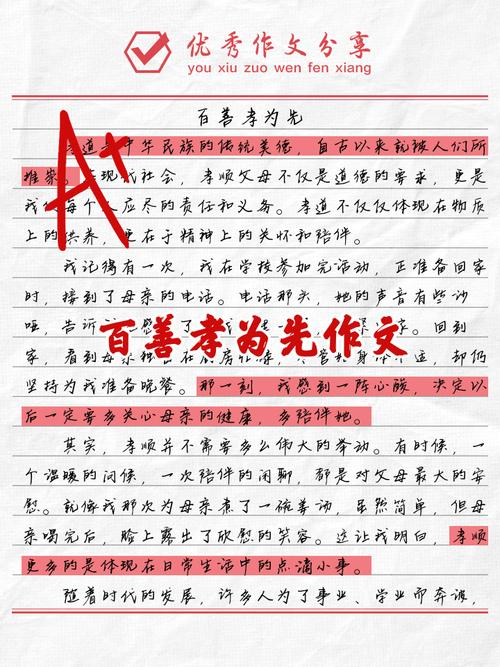 优秀作文分享
you xiu zuo wen fen xiang
A+
百善孝为先
道是中华民族的传统美德，自古以来就被人们所
推崇。在现代社会，孝顺父母不仅是道德的要求，更是
我们每个人应尽的责任和义务。孝道不仅仅体现在物质
上的供养，更在于精神上的关怀和陪伴。
我记得有一次，我在学校参加完活动，正准备回家
时，接到了母亲的电话。电话那头，她的声音有些沙
哑，告诉我感了
百善孝为先作文
家。回到
家，看到母亲独自在厨房忙碌，尽管身体不适，却仍
坚持为我准备晚餐。那一刻，我感到一阵心酸，决定以
后一定要多关心母亲的健康，多陪伴她。
其实，孝顺并不需要多么伟大的举动。有时候，一
个温暖的问候，一次陪伴的闲聊，都是对父母最大的安
慰。就像我那次为母亲煮了一碗姜汤，虽然简单，但母
亲喝完后，脸上露出了欣慰的笑容。这让我明白，孝顺
更多的是体现在日常生活中的点滴小事。
随着时代的发展，许多人为了事业、学业而奔波，